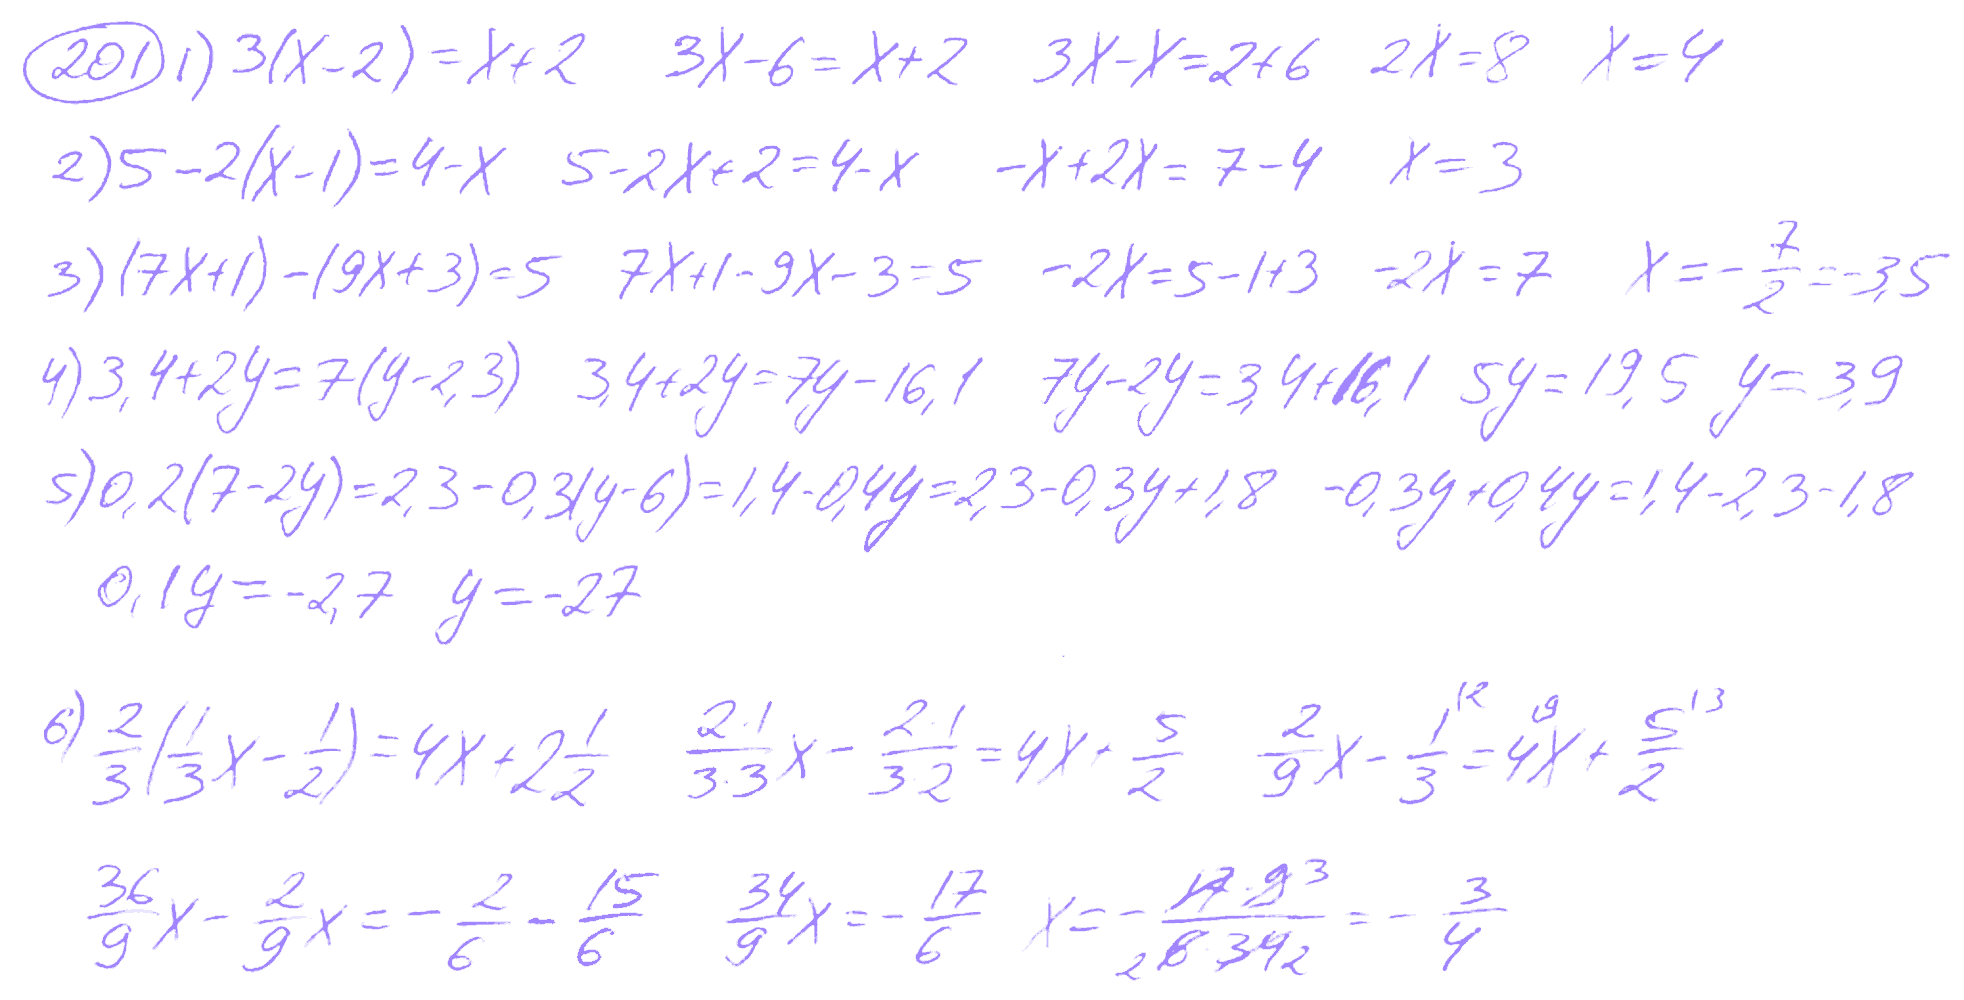 201 1) 3(x-2)=x+2 3x-6=x+2 3x-x=2+6 2x=8 x=4
2) 5-2(x-1)=4-x 5-2x+2=4-x -x+2x=7-4 x=3
3) (7x+1)-(9x+3)=5 7x+1-9x-3=5 -2x=5-1+3 -2x=7 x=-7/2=-3,5
4) 3,4+2y=7(y-2,3) 3,4+2y=7y-16,1 7y-2y=3,4+16,1 5y=19,5 y=3,9
5) 0,2(7-2y)=2,3-0,3(y-6)=1,4-0,4y=2,3-0,3y+1,8 -0,3y+0,4y=1,4-2,3-1,8
0,1y=-2,7 y=-27
6) 2/3(1/3x-1/2)=4x+2 1/2 2·1/3·3x-2·1/3·2=4x+5/2 2/9x-1/3 |2=4x |9+5/2 |3
36/9x-2/9x=-2/6-15/6 34/9x=-17/6 x=-17·9 3/2 6·34 2=-3/4